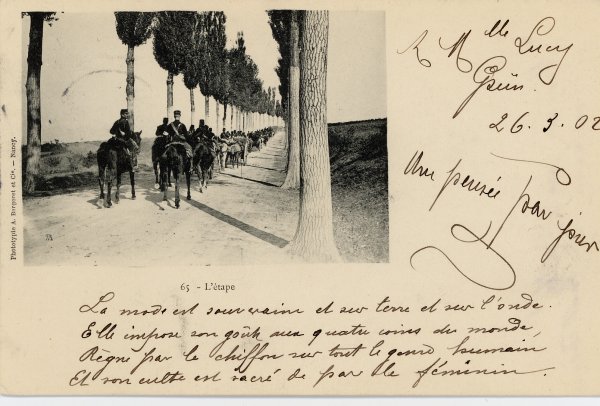 A Mlle Lucy
Grün
26.3.02
Une pensée par jour
Phototypie A. Bergeret et Cie. - Nancy.
65 - L'étape
La mode est souveraine et sur terre et sur l'onde.
Elle impose son goût aux quatre coins du monde,
Règne par le chiffon sur tout le genre humain
Et son culte est sacré de par le féminin.